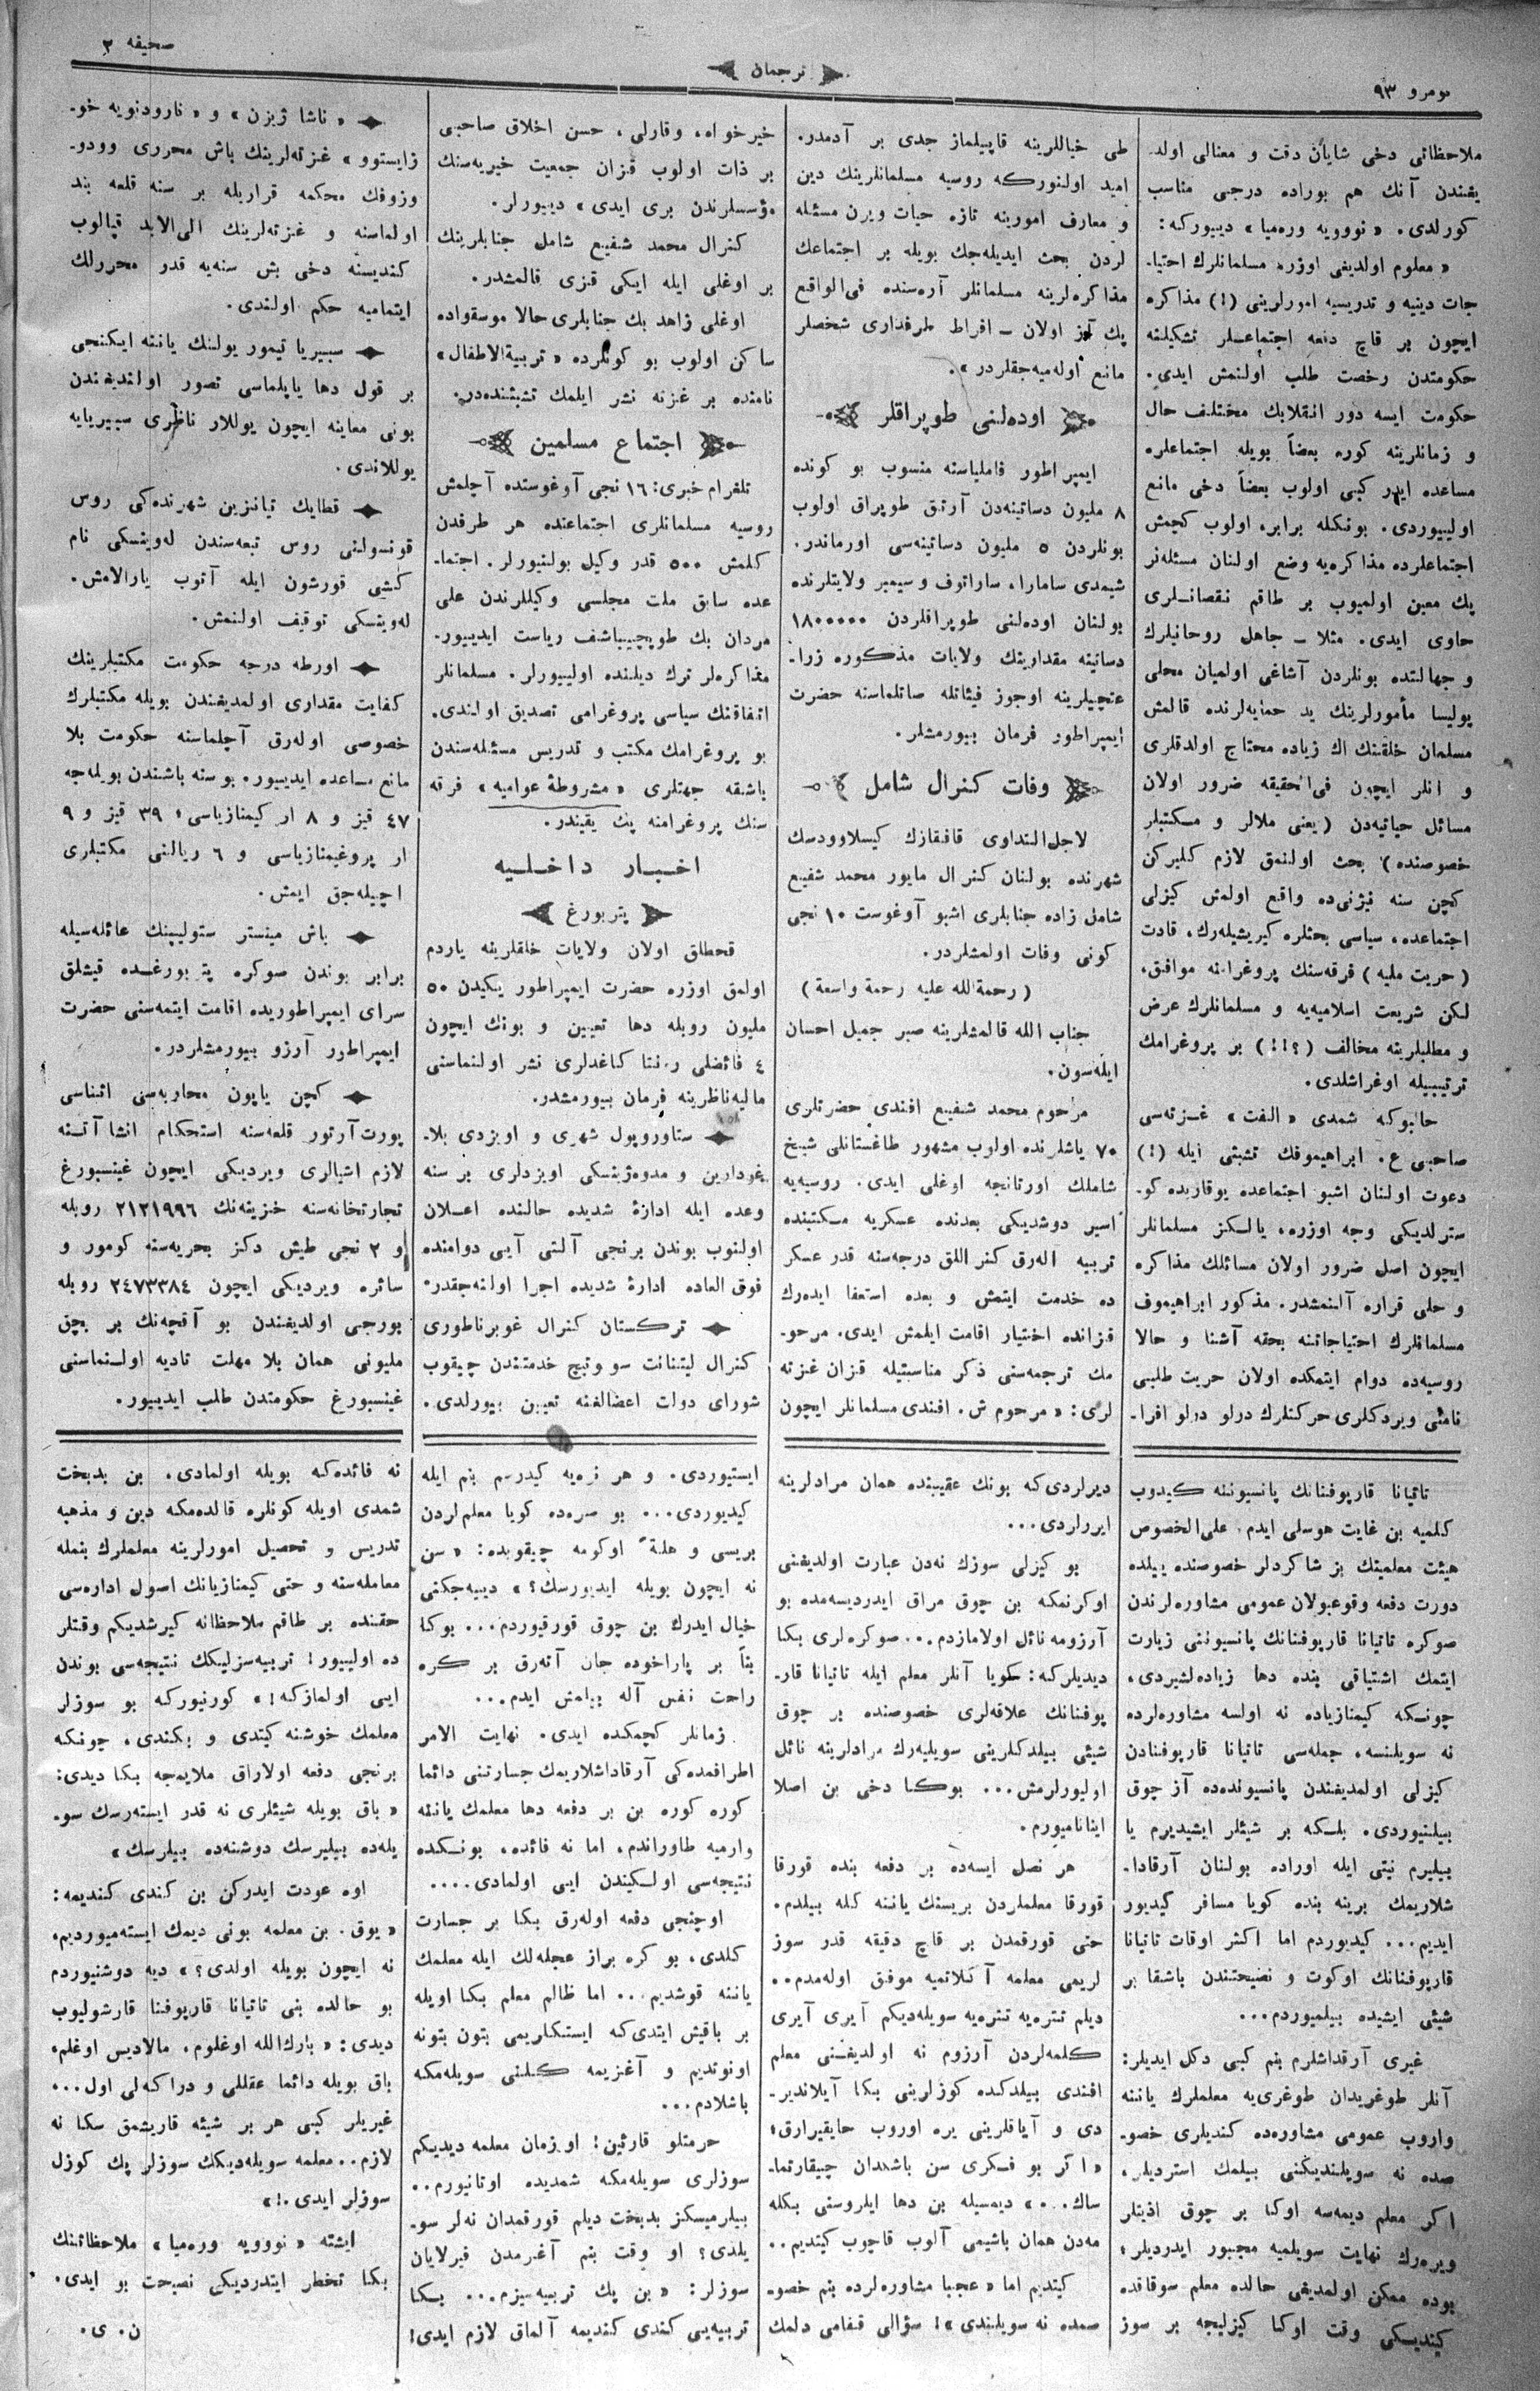 نومرو ٩٣
ترجمان
صحيفه ٢
ملاحظاتى دخى شايان دقت و معنالى اولد۔
يغندن آنك هم بوراده درجى مناسب
كورلدى. «نوويه وره‌ميا» دييوركه:
«معلوم اولديغى اوزره مسلمانلرك احتيا۔
جات دينيه و تدريسيه امورلرينى (!) مذاكره
ايچون بر قاچ دفعه اجتماعلر تشكيلنه
حكومتدن رخصت طلب اولنمش ايدى.
حكومت ايسه دور انقلابك مختلف حال
و زمانلرينه كوره بعضاً بويله اجتماعلره
مساعده ايدر كبى اولوب بعضاً دخى مانع
اوليبوردى. بونكله برابر، اولوب كچمش
اجتماعلرده مذاكره‌يه وضع اولنان مسئله‌لر
پك معين اولميوب بر طاقم نقصانلرى
حاوى ايدى. مثلا ــ جاهل روحانيلرك
و جهالتده بونلردن آشاغى اولميان محلى
پوليسا مأمورلرينك يد حمايه‌لرنده قالمش
مسلمان خلقنك اك زياده محتاج اولدقلرى
و انلر ايچون فى الحقيقه ضرور اولان
مسائل حياتيه‌دن (يعنى ملالر و مكتبلر
خصوصنده) بحث اولنمق لازم كليركن
كچن سنه نيژنى‌ده واقع اولمش كيزلى
اجتماعده، سياسى بحثلره كيريشيله‌رك، قادت
(حريت مليه) فرقه‌سنك پروغرامنه موافق،
لكن شريعت اسلاميه‌يه و مسلمانلرك عرض
و مطلبلرينه مخالف (؟!!) بر پروغرامك
ترتيبيله اوغراشلدى.
حالبوكه شمدى «الفت» غزته‌سى
صاحبى ع. ابراهيموفك تشبثى ايله (!)
دعوت اولنان اشبو اجتماعده يوقاريده كو۔
سترلديكى وجه اوزره، يالكز مسلمانلر
ايچون اصل ضرور اولان مسائلك مذاكره
و حلى قراره آلنمشدر. مذكور ابراهيموف
مسلمانلرك احتياجاتنه بحقه آشنا و حالا
روسيه‌ده دوام ايتمكده اولان حريت طلبى
نامنى ويردكلرى حركتلرك درلو درلو افرا۔
طى خياللرينه قاپيلماز جدى بر آدمدر.
اميد اولنوركه روسيه مسلمانلرينك دين
و معارف امورينه تازه حيات ويرن مسئله
لردن بحث ايديله‌جك بويله بر اجتماعك
مذاكره‌لرينه مسلمانلر آره‌سنده فى‌الواقع
پك آز اولان ــ افراط طرفدارى شخصلر
مانع اوله‌ميه‌جقلردر».
اوده‌لنى طوپراقلر
ايمپراطور فاملياسنه منسوب بو كونده
٨ مليون دساتينه‌دن آرتق طوپراق اولوب
بونلردن ٥ مليون دساتينه‌سى اورماندر.
شيمدى سامارا، ساراتوف و سيمبر ولايتلرنده
بولنان اوده‌لنى طوپراقلردن ١٨٠٠٠٠٠
دساتينه مقدارينك ولايات مذكوره زرا۔
عتچيلرينه اوجوز فيئاتله صاتلماسنه حضرت
ايمپراطور فرمان بيورمشلر.
وفات كنرال شامل
لاجل التداوى قافقازك كيسلاوودسك
شهرنده بولنان كنرال مايور محمد شفيع
شامل زاده جنابلرى اشبو آوغوست ١٠ نجى
كونى وفات اولمشلردر.
(رحمة الله عليه رحمة واسعة)
جناب الله قالمشلرينه صبر جميل احسان
ايله‌سون.
مرحوم محمد شفيع افندى حضرتلرى
٧٠ ياشلرنده اولوب مشهور طاغستانلى شيخ
شاملك اورتانجه اوغلى ايدى. روسيه‌يه
اسير دوشديكى بعدنده عسكريه مكتبنده
تربيه اله‌رق كنراللق درجه‌سنه قدر عسكر
ده خدمت ايتمش و بعده استعفا ايده‌رك
قزانده اختيار اقامت ايلمش ايدى. مرحو۔
مك ترجمه‌سنى ذكر مناسبتيله قزان غزته
لرى: «مرحوم ش. افندى مسلمانلر ايچون
خيرخواه، وقارلى، حسن اخلاق صاحبى
بر ذات اولوب قزان جمعيت خيريه‌سنك
مؤسسلرندن برى ايدى» دييورلر.
كنرال محمد شفيع شامل جنابلرينك
بر اوغلى ايله ايكى قزى قالمشدر.
اوغلى زاهد بك جنابلرى حالا موسقواده
ساكن اولوب بو كونلرده «تربية الاطفال»
نامنده بر غزته نشر ايلمك تشبثنده‌در.
اجتماع مسلمين
تلغرام خبرى: ١٦ نجى آوغوستده آچلمش
روسيه مسلمانلرى اجتماعنده هر طرفدن
كلمش ٥٠٠ قدر وكيل بولنيورلر. اجتما۔
عده سابق ملت مجلسى وكيللرندن على
مردان بك طوپچيباشف رياست ايدييور.
مذاكره‌لر ترك ديلنده اوليبورلر. مسلمانلر
اتفاقنك سياسى پروغرامى تصديق اولندى.
بو پروغرامك مكتب و تدريس مسئله‌سندن
باشقه جهتلرى «مشروطهٔ عواميه» فرقه
سنك پروغرامنه پك يقيندر.
اخبار داخليه
پتربورغ
قحطلق اولان ولايات خلقلرينه ياردم
اولمق اوزره حضرت ايمپراطور يكيدن ٥٠
مليون روبله دها تعيين و بونك ايچون
٤ فائضلى رنتا كاغدلرى نشر اولنماسنى
ماليه ناظرينه فرمان بيورمشدر.
ستاوروپول شهرى و اويزدى بلا۔
غودارين و مدوه‌ژينسكى اويزدلرى بر سنه
وعده ايله ادارهٔ شديده حالنده اعلان
اولنوب بوندن برنجى آلتى آيى دوامنده
فوق العاده ادارهٔ شديده اجرا اولنه‌جقدر.
تركستان كنرال غوبرناطورى
كنرال ليتنانت سووتيچ خدمتندن چيقوب
شوراى دولت اعضالغنه تعيين بيورلدى.
«ناشا ژيزن» و «نارودنويه خو۔
زايستوو» غزته‌لرينك باش محررى وودو۔
وزوفك محكمه قراريله بر سنه قلعه بند
اولماسنه و غزته‌لرينك الى الابد قپالوب
كنديسنه دخى بش سنه‌يه قدر محررلك
ايتماميه حكم اولندى.
سبيريا تيمور يولنك يانته ايكنجى
بر قول دها ياپلماسى تصور اولنديغندن
بونى معاينه ايچون يوللار ناظرى سيبريايه
يوللاندى.
قطايك تيانزين شهرنده‌كى روس
قونسولنى روس تبعه‌سندن له‌ويتسكى نام
كشى قورشون ايله آتوب يارالامش.
له‌ويتسكى توقيف اولنمش.
اورطه درجه حكومت مكتبلرينك
كفايت مقدارى اولمديغندن بويله مكتبلرك
خصوصى اوله‌رق آچلماسنه حكومت بلا
مانع مساعده ايدييور. بو سنه باشندن بويله‌جه
٤٧ قيز و ٨ ار كيمنازياسى؛ ٣٩ قيز و ٩
ار پروغيمنازياسى و ٦ ريالنى مكتبلرى
اچيله‌جق ايمش.
باش مينستر ستوليپنك عائله‌سيله
برابر بوندن سوكره پتربورغده قيشلق
سراى ايمپراطوريده اقامت ايتمه‌سنى حضرت
ايمپراطور آرزو بيورمشلردر.
كچن ياپون محاربه‌سى اثناسى
پورت آرتور قلعه‌سنه استحكام انشاآتنه
لازم اشيالرى ويرديكى ايچون غينسبورغ
تجارتخانه‌سنه خزينه‌نك ٢١٢١٩٩٦ روبله
و ٢ نجى طيش دكز بحريه‌سنه كومور و
سائره ويرديكى ايچون ٢٤٧٣٣٨٤ روبله
بورجى اولديغندن بو آقچه‌نك بر بچق
مليونى همان بلا مهلت تاديه اولنماسنى
غينسبورغ حكومتدن طلب ايدييور.
تاتيانا قارپوفنانك پانسيوننه كيدوب
كلميه بن غايت هوسلى ايدم. على الخصوص
هيئت معلمينك بز شاكردلر خصوصنده ييلده
دورت دفعه وقوعبولان عمومى مشاوره‌لرندن
صوكره تاتيانا قارپوفنانك پانسيوننى زيارت
ايتمك اشتياقى بنده دها زياده‌لشيردى،
چونكه كيمنازياده نه اولسه مشاوره‌لرده
نه سويلنسه، جمله‌سى تاتيانا قارپوفنادن
كيزلى اولمديغندن پانسيونده‌ده آز چوق
بيلينيوردى. بلكه بر شيئلر ايشيديرم يا
بيليرم نيتى ايله اوراده بولنان آرقادا۔
شلاريمك برينه بنده كويا مسافر كيديور
ايديم... كيديوردم اما اكثر اوقات تاتيانا
قارپوفنانك اوكوت و نصيحتندن باشقا بر
شيئى ايشيده بيلميوردم...
غيرى آرقداشلرم بنم كبى دكل ايديلر:
آنلر طوغريدان طوغرى‌يه معلملرك ياننه
واروب عمومى مشاوره‌ده كنديلرى خصو۔
صده نه سويلنديكنى بيلمك استرديلر.
اكر معلم ديمه‌سه اوكا بر چوق اذيتلر
ويره‌رك نهايت سويلميه مجبور ايدرديلر؛
بوده ممكن اولمديغى حالده معلم سوقاقده
كيتديكى وقت اوكا كيزليجه بر سوز
ديرلردى كه بونك عقيبنده همان مرادلرينه
ايررلردى...
بو كيزلى سوزك نه‌دن عبارت اولديغنى
اوكرنمكه بن چوق مراق ايدرديسه‌مده بو
آرزومه نائل اولامازدم... صوكره‌لرى بكا
ديديلركه: كويا آنلر معلم ايله تاتيانا قار۔
پوفنانك علاقه‌لرى خصوصنده بر چوق
شيئى بيلدكلرينى سويليه‌رك مرادلرينه نائل
اوليورلرمش... بوكا دخى بن اصلا
اينانامیورم.
هر نصل ايسه‌ده بر دفعه بنده قورقا
قورقا معلملردن بريسنك ياننه كله بيلدم.
حتى قورقمدن بر قاچ دقيقه قدر سوز
لريمى معلمه آكلاتميه موفق اوله‌مدم..
ديلم تتره‌يه تتره‌يه سويله‌ديكم آيرى آيرى
كلمه‌لردن آرزوم نه اولديغنى معلم
افندى بيلدكده كوزلرينى بكا آيلاندير۔
دى و آياقلرينى يره اوروب حايقيرارق؛
«اكر بو فكرى سن باشكدان چيقارتما۔
ساك...» ديمسيله بن دها ايلروسنى بكله
مه‌دن همان باشيمى آلوب قاچوب كيتديم..
كيتديم اما «عجبا مشاوره‌لرده بنم خصو۔
صمده نه سويلندى»! سؤالى قفامى دلمك
ايستيوردى. و هر نره‌يه كيدرسم بنم ايله
كيديوردى... بو صره‌ده كويا معلم لردن
بريسى و هلةً اوكومه چيقوبده: «سن
نه ايچون بويله ايديورسك؟» دييه‌جكنى
خيال ايدرك بن چوق قورقيوردم... بوكا
بر پاراخوده جان آته‌رق بر كره
راحت نفس آله بيلمش ايدم...
زمانلر كچمكده ايدى. نهايت الامر
اطرافمده‌كى آرقاداشلاريمك جسارتنى دائما
كوره كوره بن بر دفعه دها معلمك ياننه
وارميه طاوراندم، اما نه فائده، بونكده
نتيجه‌سى اولكيندن ايى اولمادى....
اوچنجى دفعه اوله‌رق بكا بر جسارت
كلدى، بو كره براز عجله‌لك ايله معلمك
ياننه قوشديم... اما ظالم معلم بكا اويله
بر باقيش ايتدى كه ايستكلريمى بتون بتونه
اونوتديم و آغزيمه كلنى سويله‌مكه
باشلادم...
حرمتلو قارئين! او زمان معلمه ديديكم
سوزلرى سويله‌مكه شمديده اوتانيورم..
بيلرميسكز بدبخت ديلم قورقمدان نه‌لر سو۔
يلدى؟ او وقت بنم آغزمدن فيرلايان
سوزلر: «بن پك تربيه‌سيزم... بكا
تربيه‌يى كندى كنديمه آلماق لازم ايدى!
نه فائده‌كه بويله اولمادى. بن بدبخت
شمدى اويله كونلره قالده‌مكه دين و مذهبه
تدريس و تحصيل امورلرينه معلملرك بنمله
معامله‌سنه و حتى كيمنازيانك اصول اداره‌سى
حقنده بر طاقم ملاحظاته كيرشديكم وقتلر
ده اولييور! تربيه‌سزليكك نتيجه‌سى بوندن
ايى اولمازكه!» كورنيوركه بو سوزلر
معلمك خوشنه كيتدى و بكندى، چونكه
برنجى دفعه اولاراق ملايمجه بكا ديدى:
«باق بويله شيئلرى نه قدر ايسته‌رسك سو۔
يله‌ده بيليرسك دوشنه‌ده بيلرسك»
اوه عودت ايدركن بن كندى كنديمه:
«يوق. بن معلمه بونى ديمك ايسته‌ميورديم،
نه ايچون بويله اولدى؟» ديه دوشنيوردم
بو حالده بنى تاتيانا قارپوفنا قارشوليوب
ديدى: «بارك الله اوغلوم، مالاديس اوغلم،
باق بويله دائما عقللى و دراكه‌لى اول...
غيريلر كبى هر بر شيئه قاريشمق سكا نه
لازم.. معلمه سويله‌ديكك سوزلر پك كوزل
سوزلر ايدى.!»
ايشته «نوويه وره‌ميا» ملاحظاتينك
بكا تخطر ايتدرديكى نصيحت بو ايدى.
ن. ى.